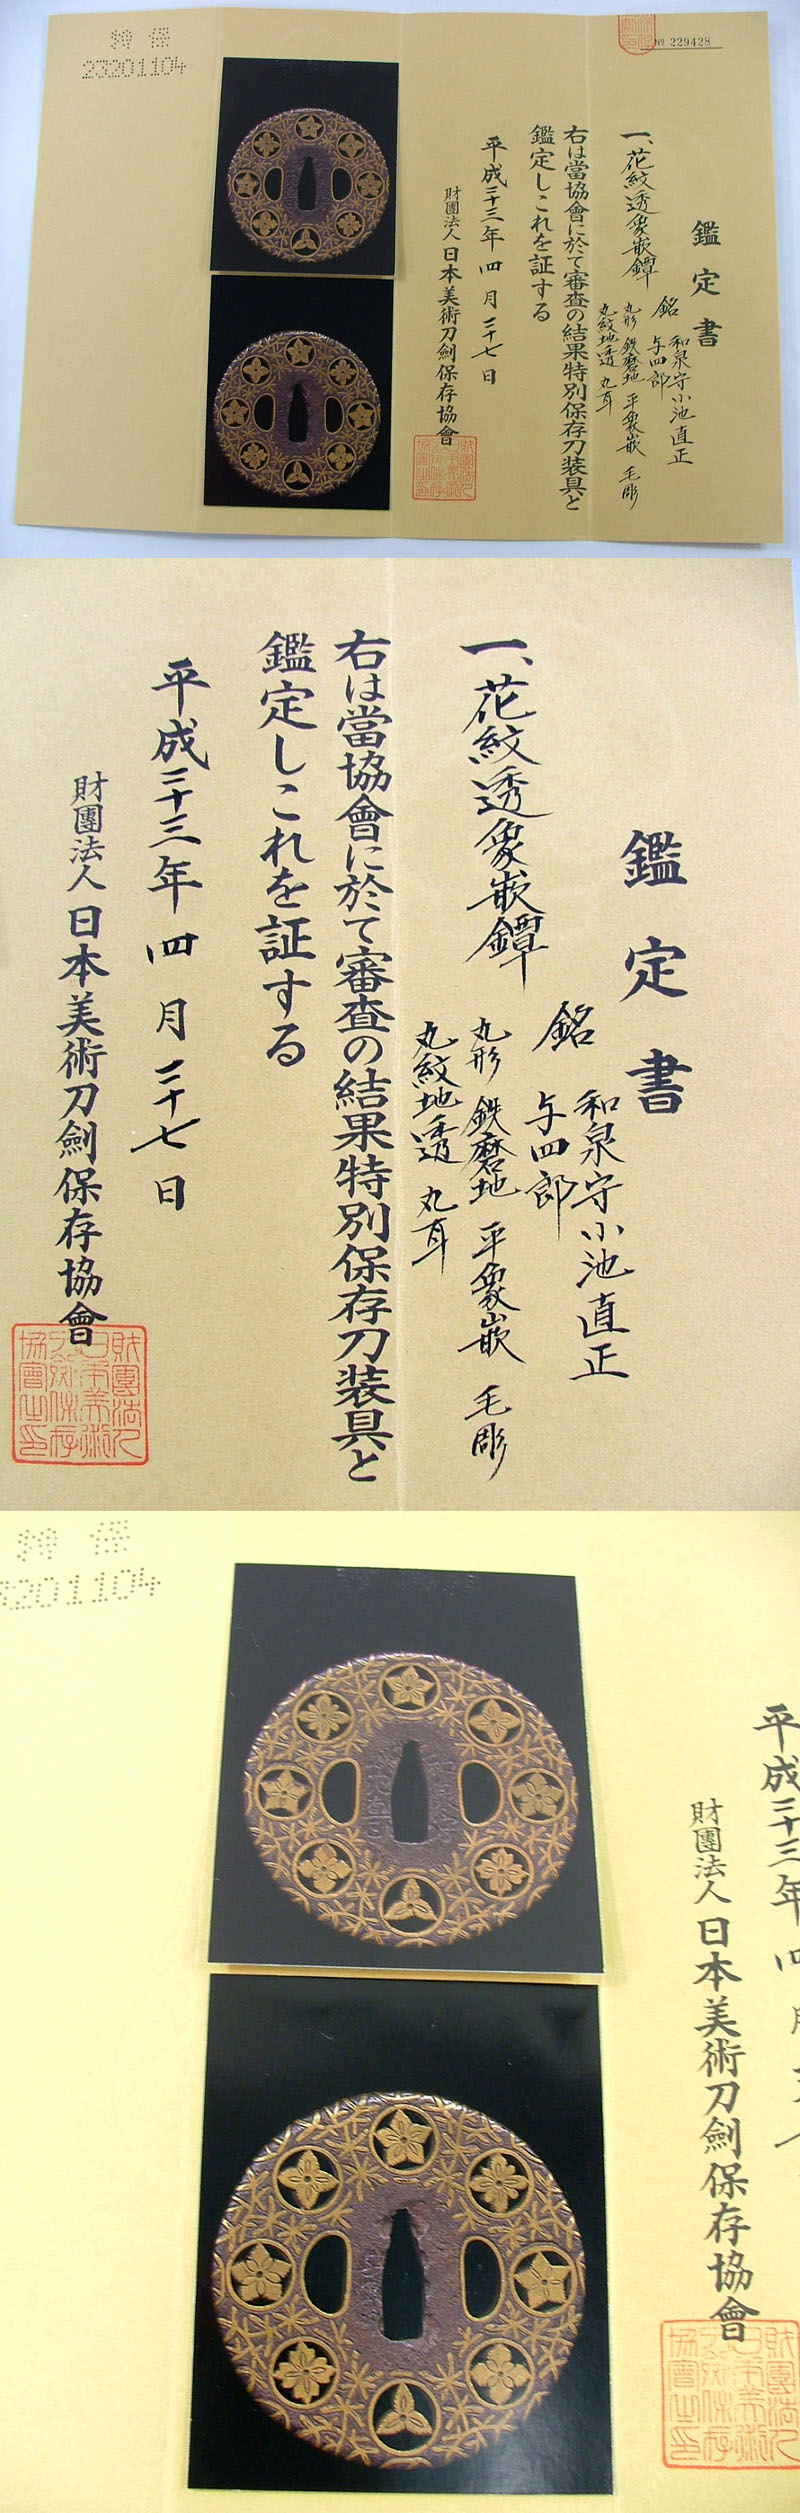 特保
23201104
№ 229428
鑑定書
一、花紋透象嵌鐔
銘 和泉守小池直正
与四郎
丸形 鉄磨地 平象嵌 毛彫
丸紋地透 丸耳
右は當協會に於て審査の結果特別保存刀装具と
鑑定しこれを証する
平成二十三年四月二十七日
財團法人日本美術刀劍保存協會
財團法人日本美術刀劍保存協會之印
鑑定書
一、花紋透象嵌鐔
銘 和泉守小池直正
与四郎
丸形 鉄磨地 平象嵌 毛彫
丸紋地透 丸耳
右は當協會に於て審査の結果特別保存刀装具と
鑑定しこれを証する
平成二十三年四月二十七日
財團法人日本美術刀劍保存協會
財團法人日本美術刀劍保存協會之印
特保
3201104
平成二十三年四月二
財團法人日本美術刀劍保存協會
財團法人日本美術刀劍保存協會之印